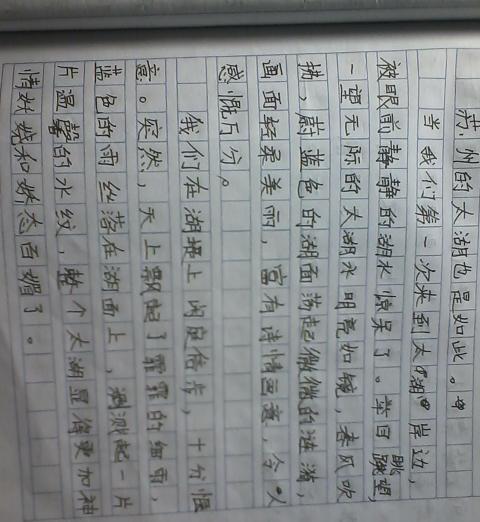 苏州的太湖也是如此。
当我们第一次来到太湖岸边，
被眼前静静的湖水惊呆了。举目眺望，
一望无际的太湖水明亮如镜，春风吹
拂，蔚蓝色的湖面荡起微微的涟漪，
画面轻柔美丽，富有诗情画意，令人
感慨万分。
我们在湖堤上闲庭信步，十分惬
意。突然，天上飘起了霏霏的细雨，
蓝色的雨丝落在湖面上，溅起一片
片温馨的水纹，整个太湖显得更加神
情妖娆和娇态百媚了。